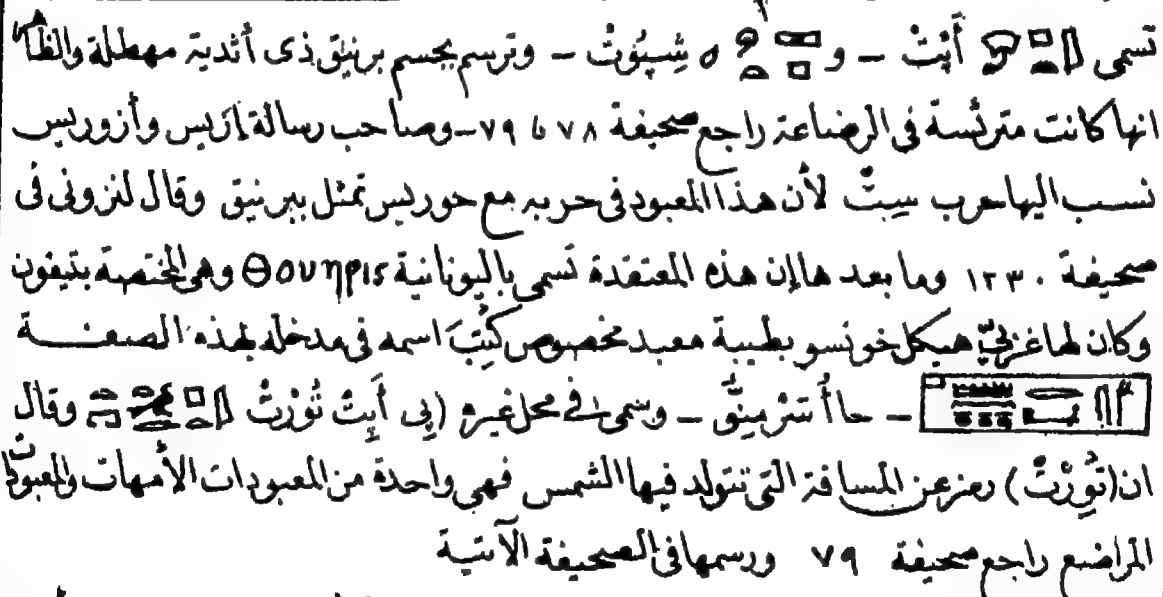 تسمى أَپْتْ – و شِسِپُوْتْ – وترسم بجسم برنيق ذى أثدية مهطلة والظاهر
انها كانت مترئسة فى الرضاعة راجع صحيفة ٧٨ ٦ ٧٩ – وصاحب رسالة إزيس وأزوريس
نسب اليها حرب سِتْ لأن هذا المعبود فى حربه مع حوريس تمثل ببرنيق وقال لنزونى فى
صحيفة ١٢٣٠ وما بعدها إن هذه المعتقدة تسمى باليونانية Θουηρις وهى المختصة بتيفون
وكان لها غربىّ هيكل خونسو بطيبة معبد مخصوص كُتِبَ اسمه فى مدخله بهذه الصفة
– حاأُ سْتْرمِينَّوْ – وسمى فى محل غيره (پِى أَپِتْ تُوْرْتْ وقال
ان (تُوِرْتْ) رمز عن المسافة التى تتولد فيها الشمس فهى واحدة من المعبودات الأمهات والمعبودات
المراضع راجع صحيفة ٧٩ ورسمها فى الصحيفة الآتية